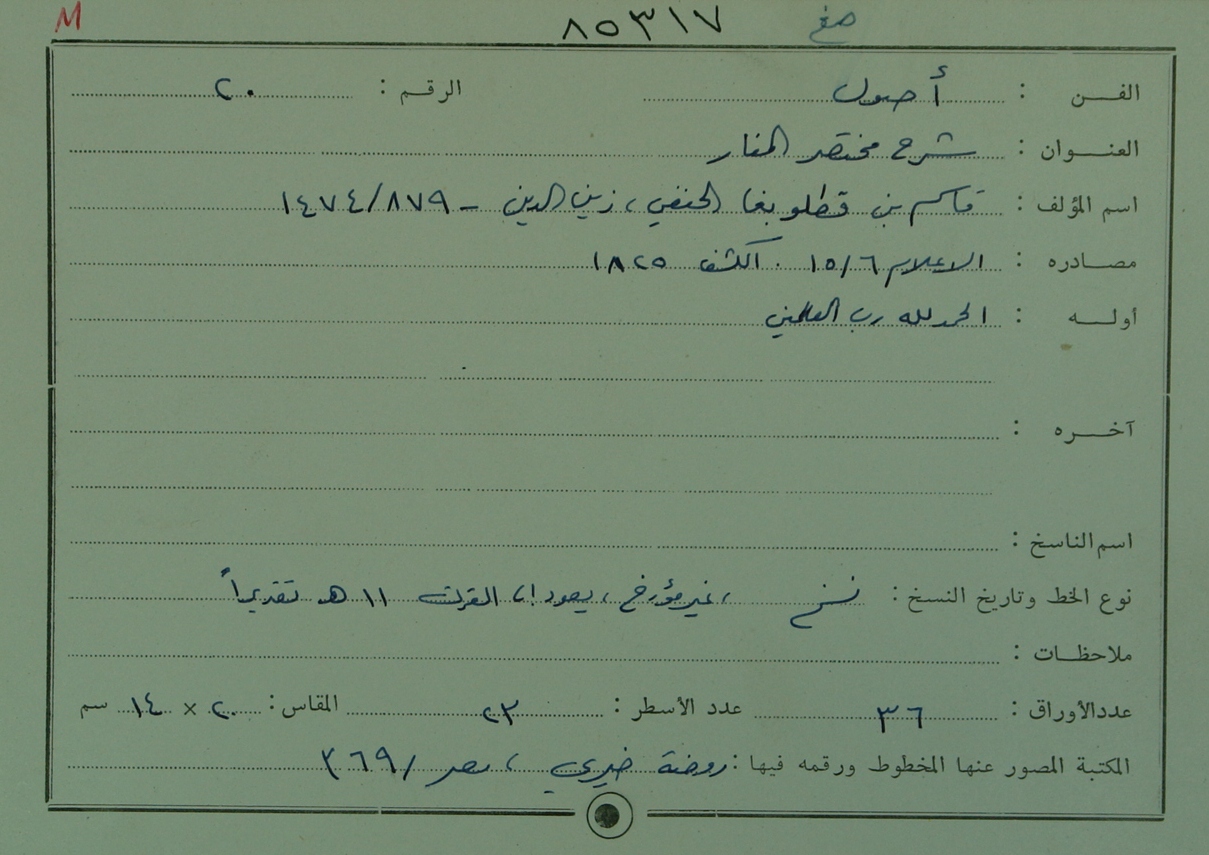 M ٨٥٣١٧ صغ
الفن : أصول الرقم : ٢٠
العنوان : شرح مختصر المنار
اسم المؤلف : قاسم بن قطلوبغا الحنفي، زين الدين - ١٤٧٤/٨٧٩
مصادره : الاعلام ١٥/٦ . الكشف ١٨٢٥
أوله : الحمد لله رب العلمين
آخره :
اسم الناسخ :
نوع الخط وتاريخ النسخ : نسخ ، غير مؤرخ ، يعود إلى القرن ١١ هـ تقديراً
ملاحظات :
عدد الأوراق : ٣٦ عدد الأسطر : ٢٣ المقاس : ٢٠ × ١٤ سم
المكتبة المصور عنها المخطوط ورقمه فيها : روضة خيري ، مصر / ٣٦٩